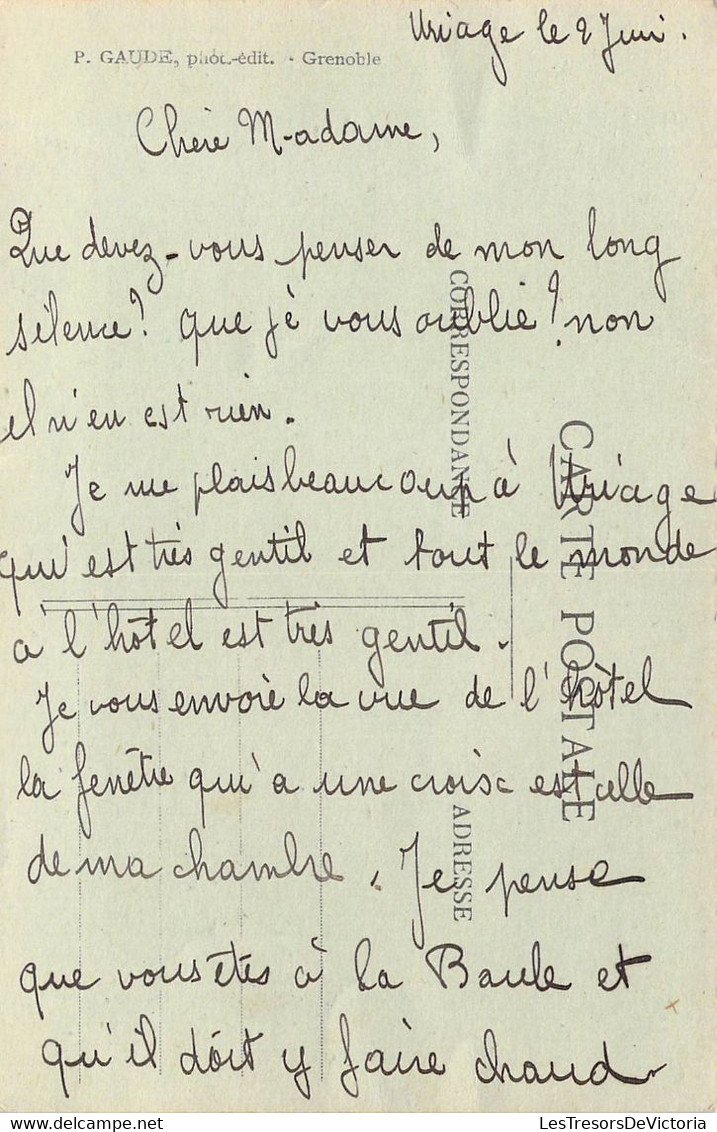 Uriage le 2 Juin.
P. GAUDE, phot.-édit. - Grenoble
Chère Madame,
Que devez-vous penser de mon long
silence? que je vous oublie? non
il n'en est rien.
Je me plais beaucoup à Uriage
qui est très gentil et tout le monde
à l'hôtel est très gentil.
Je vous envoie la vue de l'hôtel
la fenêtre qui a une croix est celle
de ma chambre. Je pense
que vous êtes à la Baule et
qu'il doit y faire chaud
CARTE POSTALE
CORRESPONDANCE
ADRESSE
LesTresorsDeVictoria